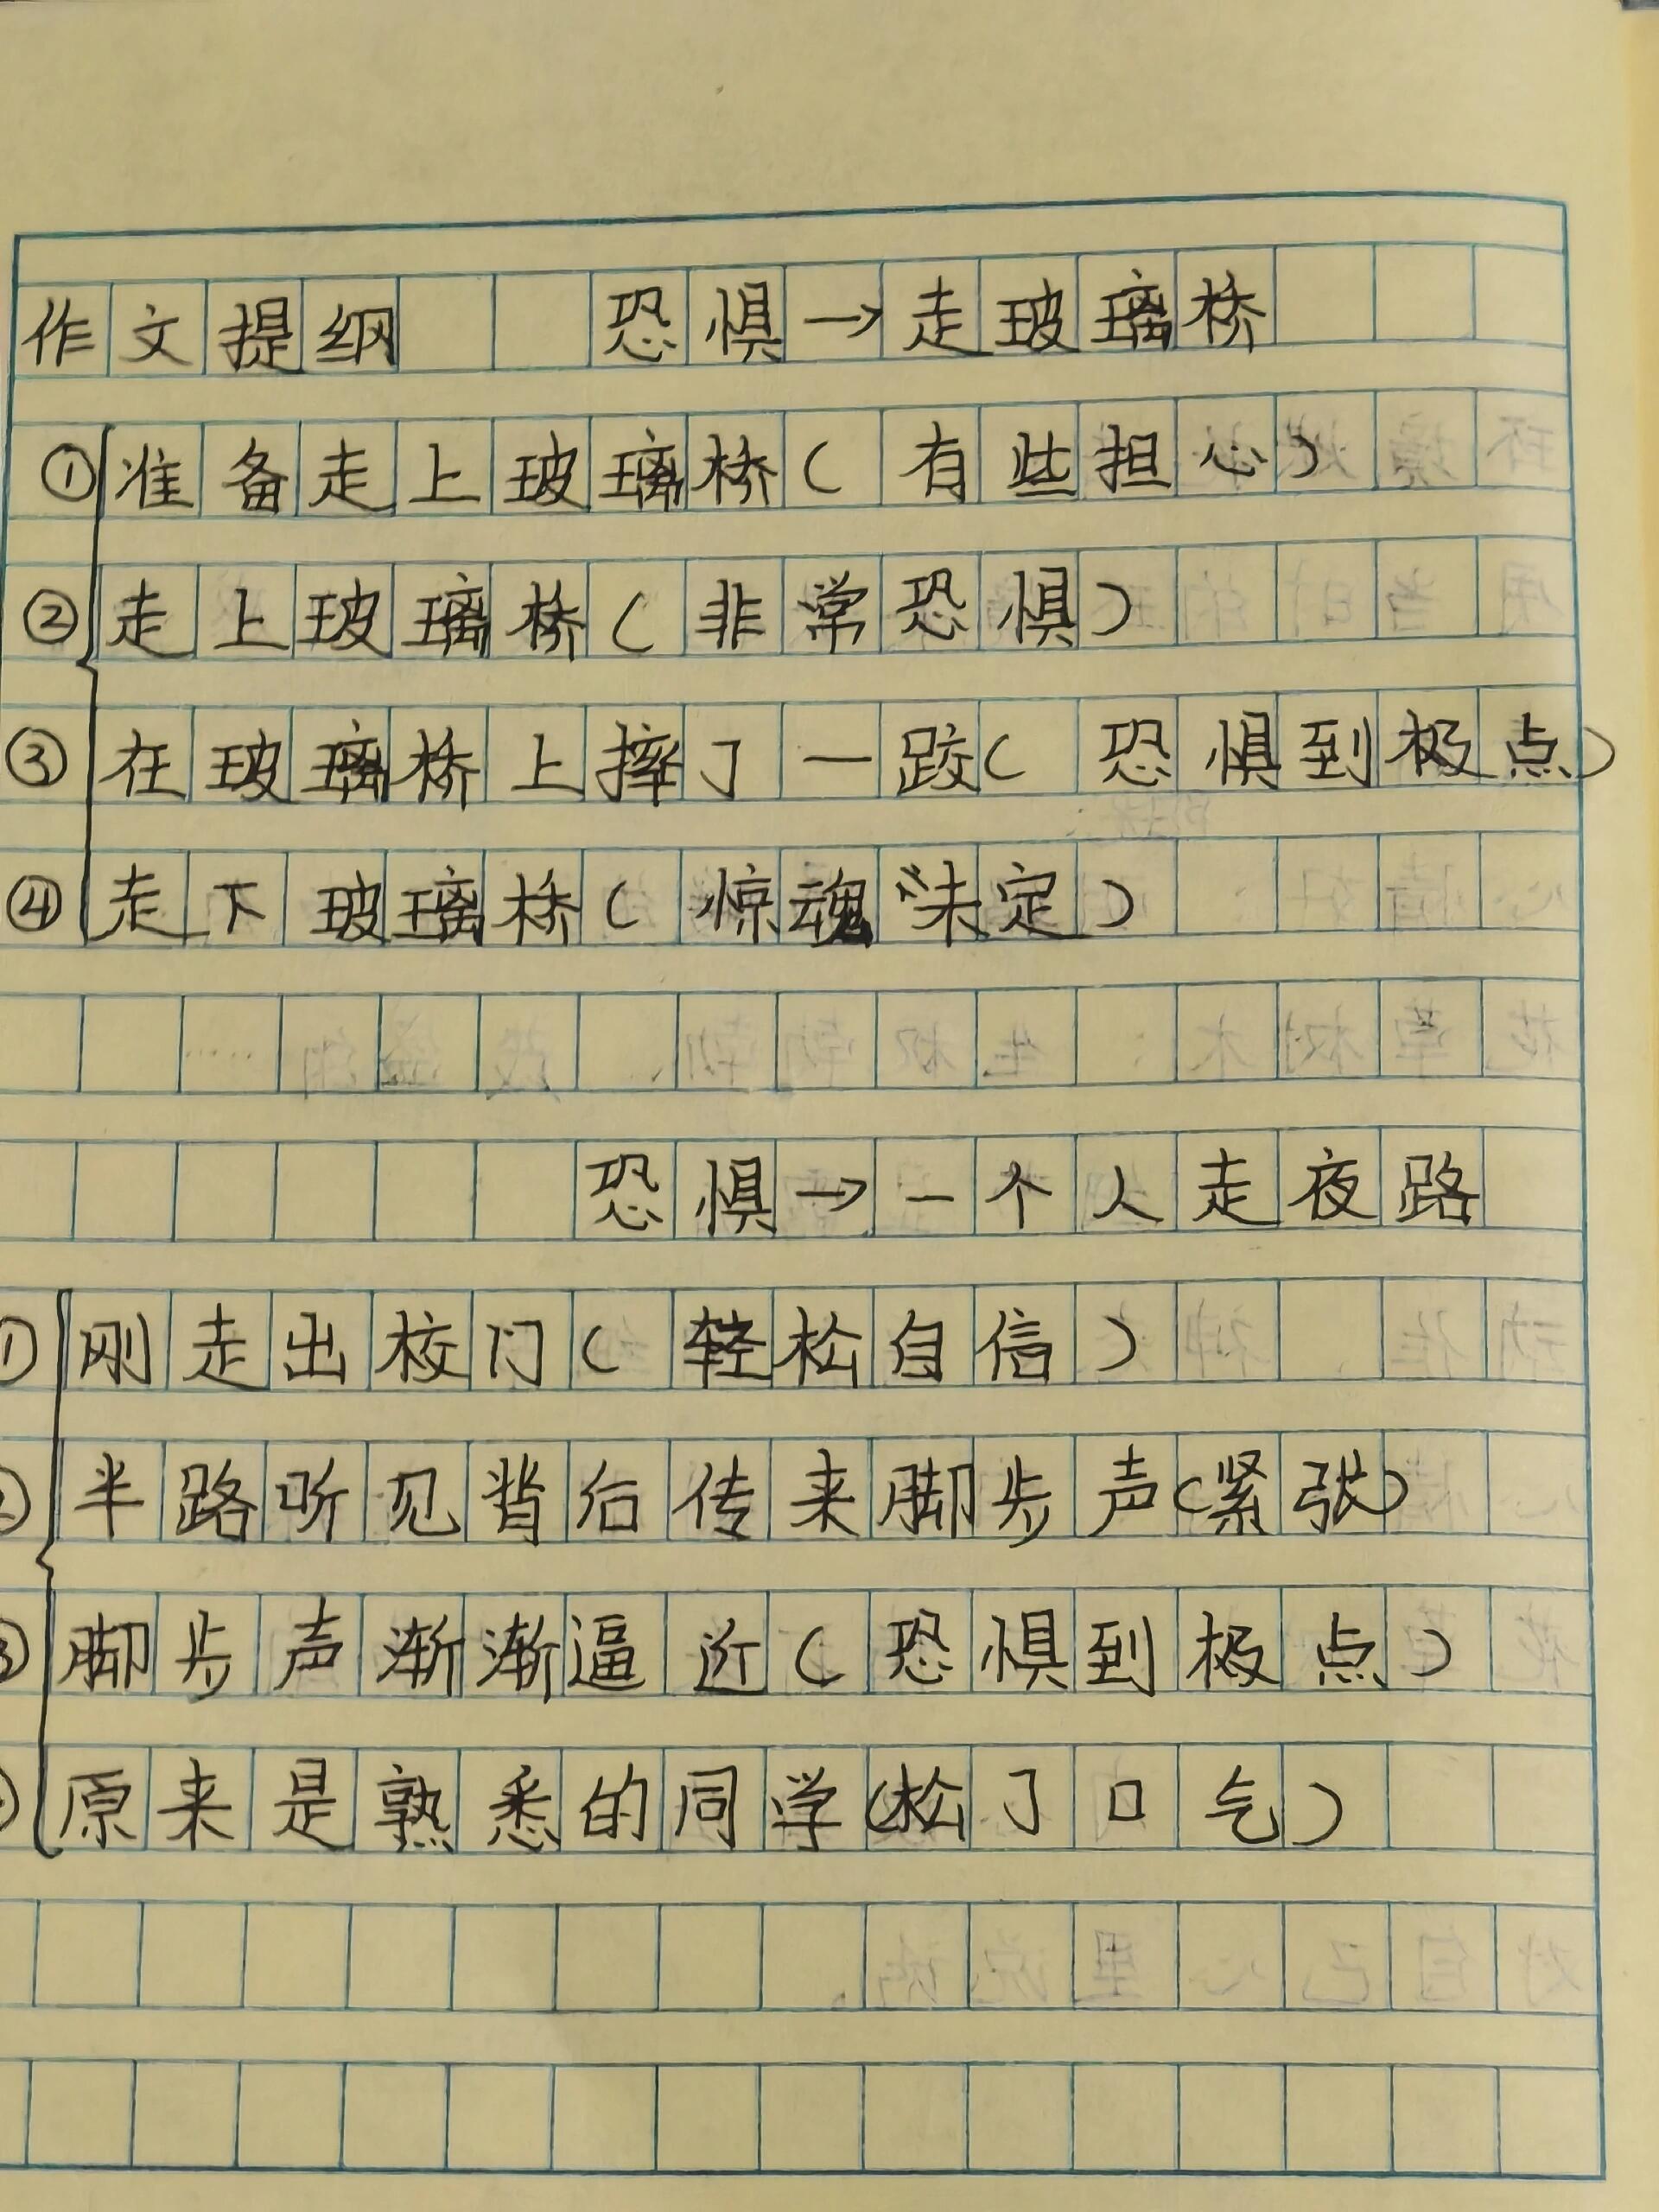 作文提纲 恐惧→走玻璃桥
①准备走上玻璃桥(有些担心)
②走上玻璃桥(非常恐惧)
③在玻璃桥上摔了一跤(恐惧到极点)
④走下玻璃桥(惊魂未定)
恐惧→一个人走夜路
①刚走出校门(轻松自信)
②半路听见背后传来脚步声(紧张)
③脚步声渐渐逼近(恐惧到极点)
原来是熟悉的同学(松了口气)